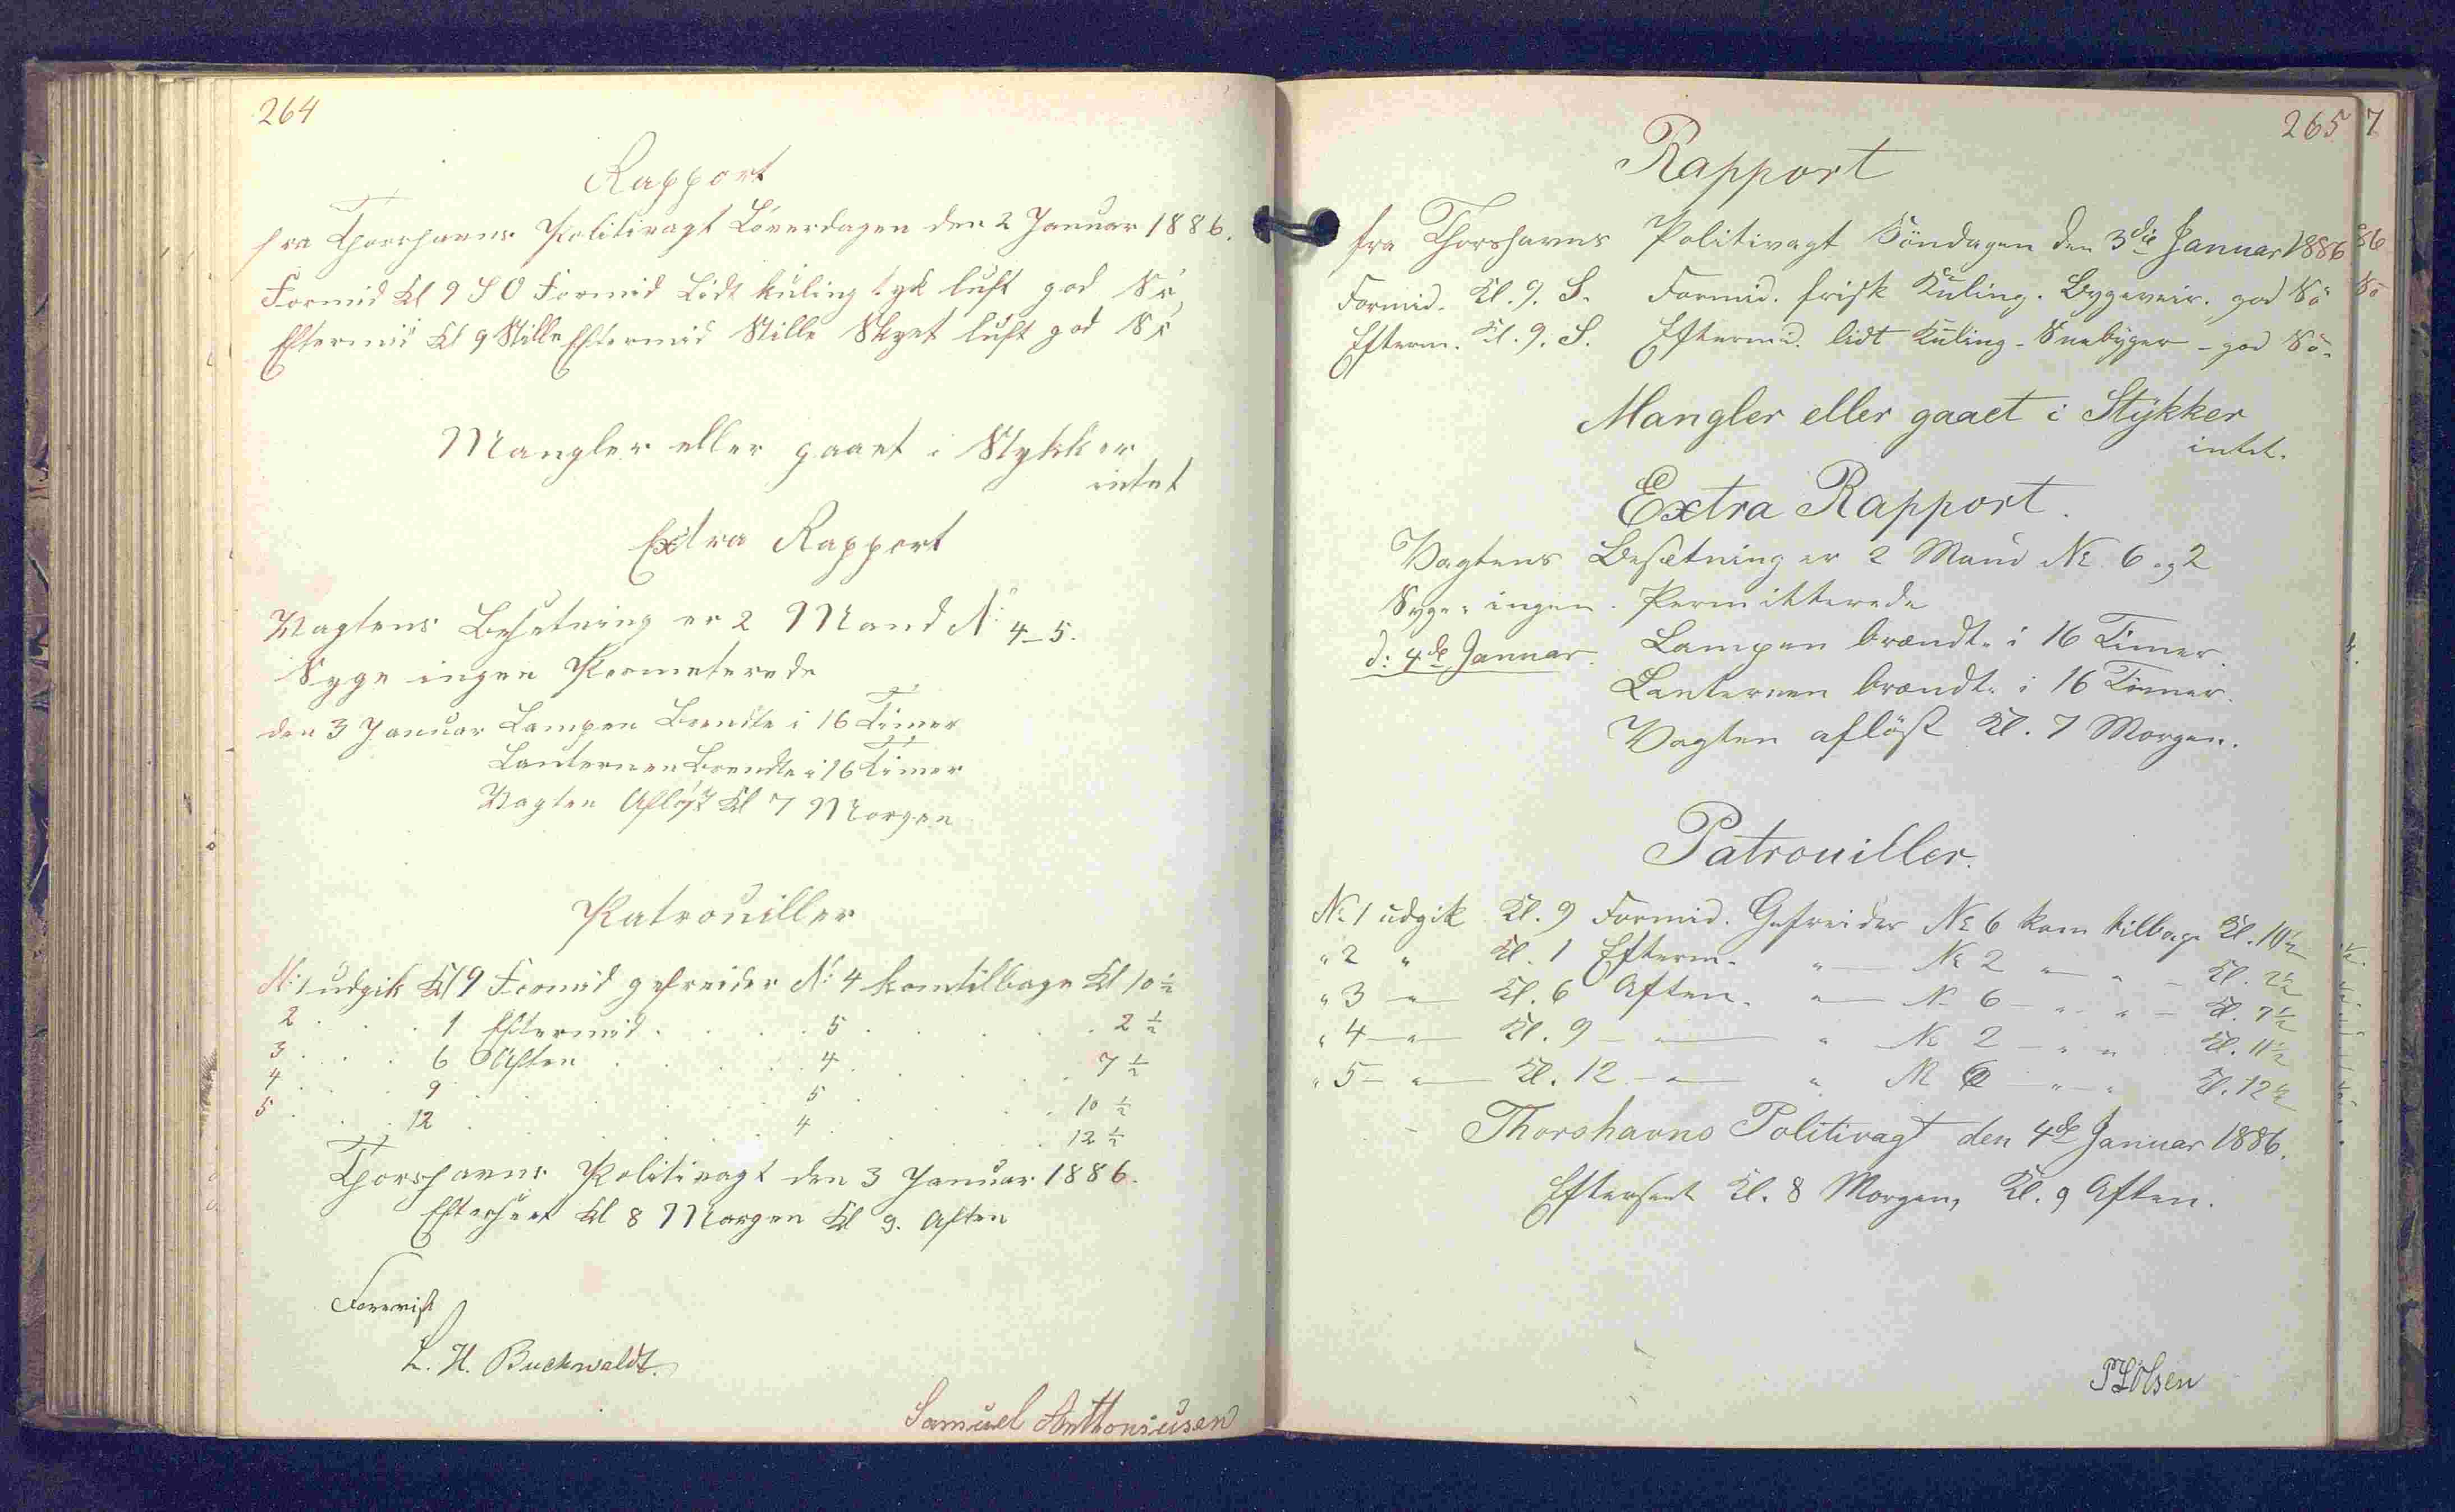 264
Rapport
fra Thorshavns Politivagt Löverdagen den 2 Januar 1886.
Formid Kl 9 SO Formid Lidt kuling tyk luft god Sö
Eftermid Kl 9 Stille Eftermid Stille Skyet luft god Sö
Mangler eller gaaet i Stykker
intet
Extra Rapport
Vagtens Besetning er 2 Mand No: 4-5.
Syge ingen Permeterede
den 3 Januar Lampen Brendte i 16 Timer
Lanternen Brendte i 16 Timer
Vagten Aflöst Kl 7 Morgen
Patrouiller
N: 1 udgik Kl 9 Formid gefreider N: 4 kom tilbage Kl 10 ½
2 . . . 1 Eftermid . . . . 5 . . . . . 2 ½
3 . . . 6 Aften . . . . 4 . . . . 7 ½
4 . . . 9 . . . . . 5 . . . . 10 ½
5 . . . 12 . . . . . 4 . . . . 12 ½
Thorshavns Politivagt den 3 Januar 1886.
Efterseet Kl 8 Morgen Kl 9. Aften
Forevist
L. H. Buchwaldt.
Samuel Anthoniusen
265
Rapport
fra Thorshavns Politivagt Söndagen den 3die Januar 1886
Formid. Kl. 9. S. Formid. frisk Kuling. Bygeveir. god Sö
Efterm. Kl. 9. S. Eftermid. lidt Kuling - Snebyger - god Sö.
Mangler eller gaaet i Stykker
intet.
Extra Rapport.
Vagtens Besætning er 2 Mand No. 6 og 2
Syge: ingen. Permitterede
d: 4de Januar. Lampen brændte i 16 Timer.
Lanternen brændte i 16 Timer.
Vagten aflöst Kl. 7 Morgen.
Patrouiller.
No 1 udgik Kl. 9 Formid. Gefreider No 6 kom tilbage Kl. 10½
" 2 " Kl. 1 Efterm. " — No 2 — " — Kl. 2½
" 3 — " — Kl. 6 Aften. " — No 6 — " — " — Kl. 7½
" 4 — " — Kl. 9 — " — " — No 2 — " — " Kl. 11½
" 5 — " — Kl. 12 — " — " No 6 — " — " Kl. 12½
Thorshavns Politivagt den 4de Januar 1886.
Efterseet Kl. 8 Morgen, Kl. 9 Aften.
7
86
Sö